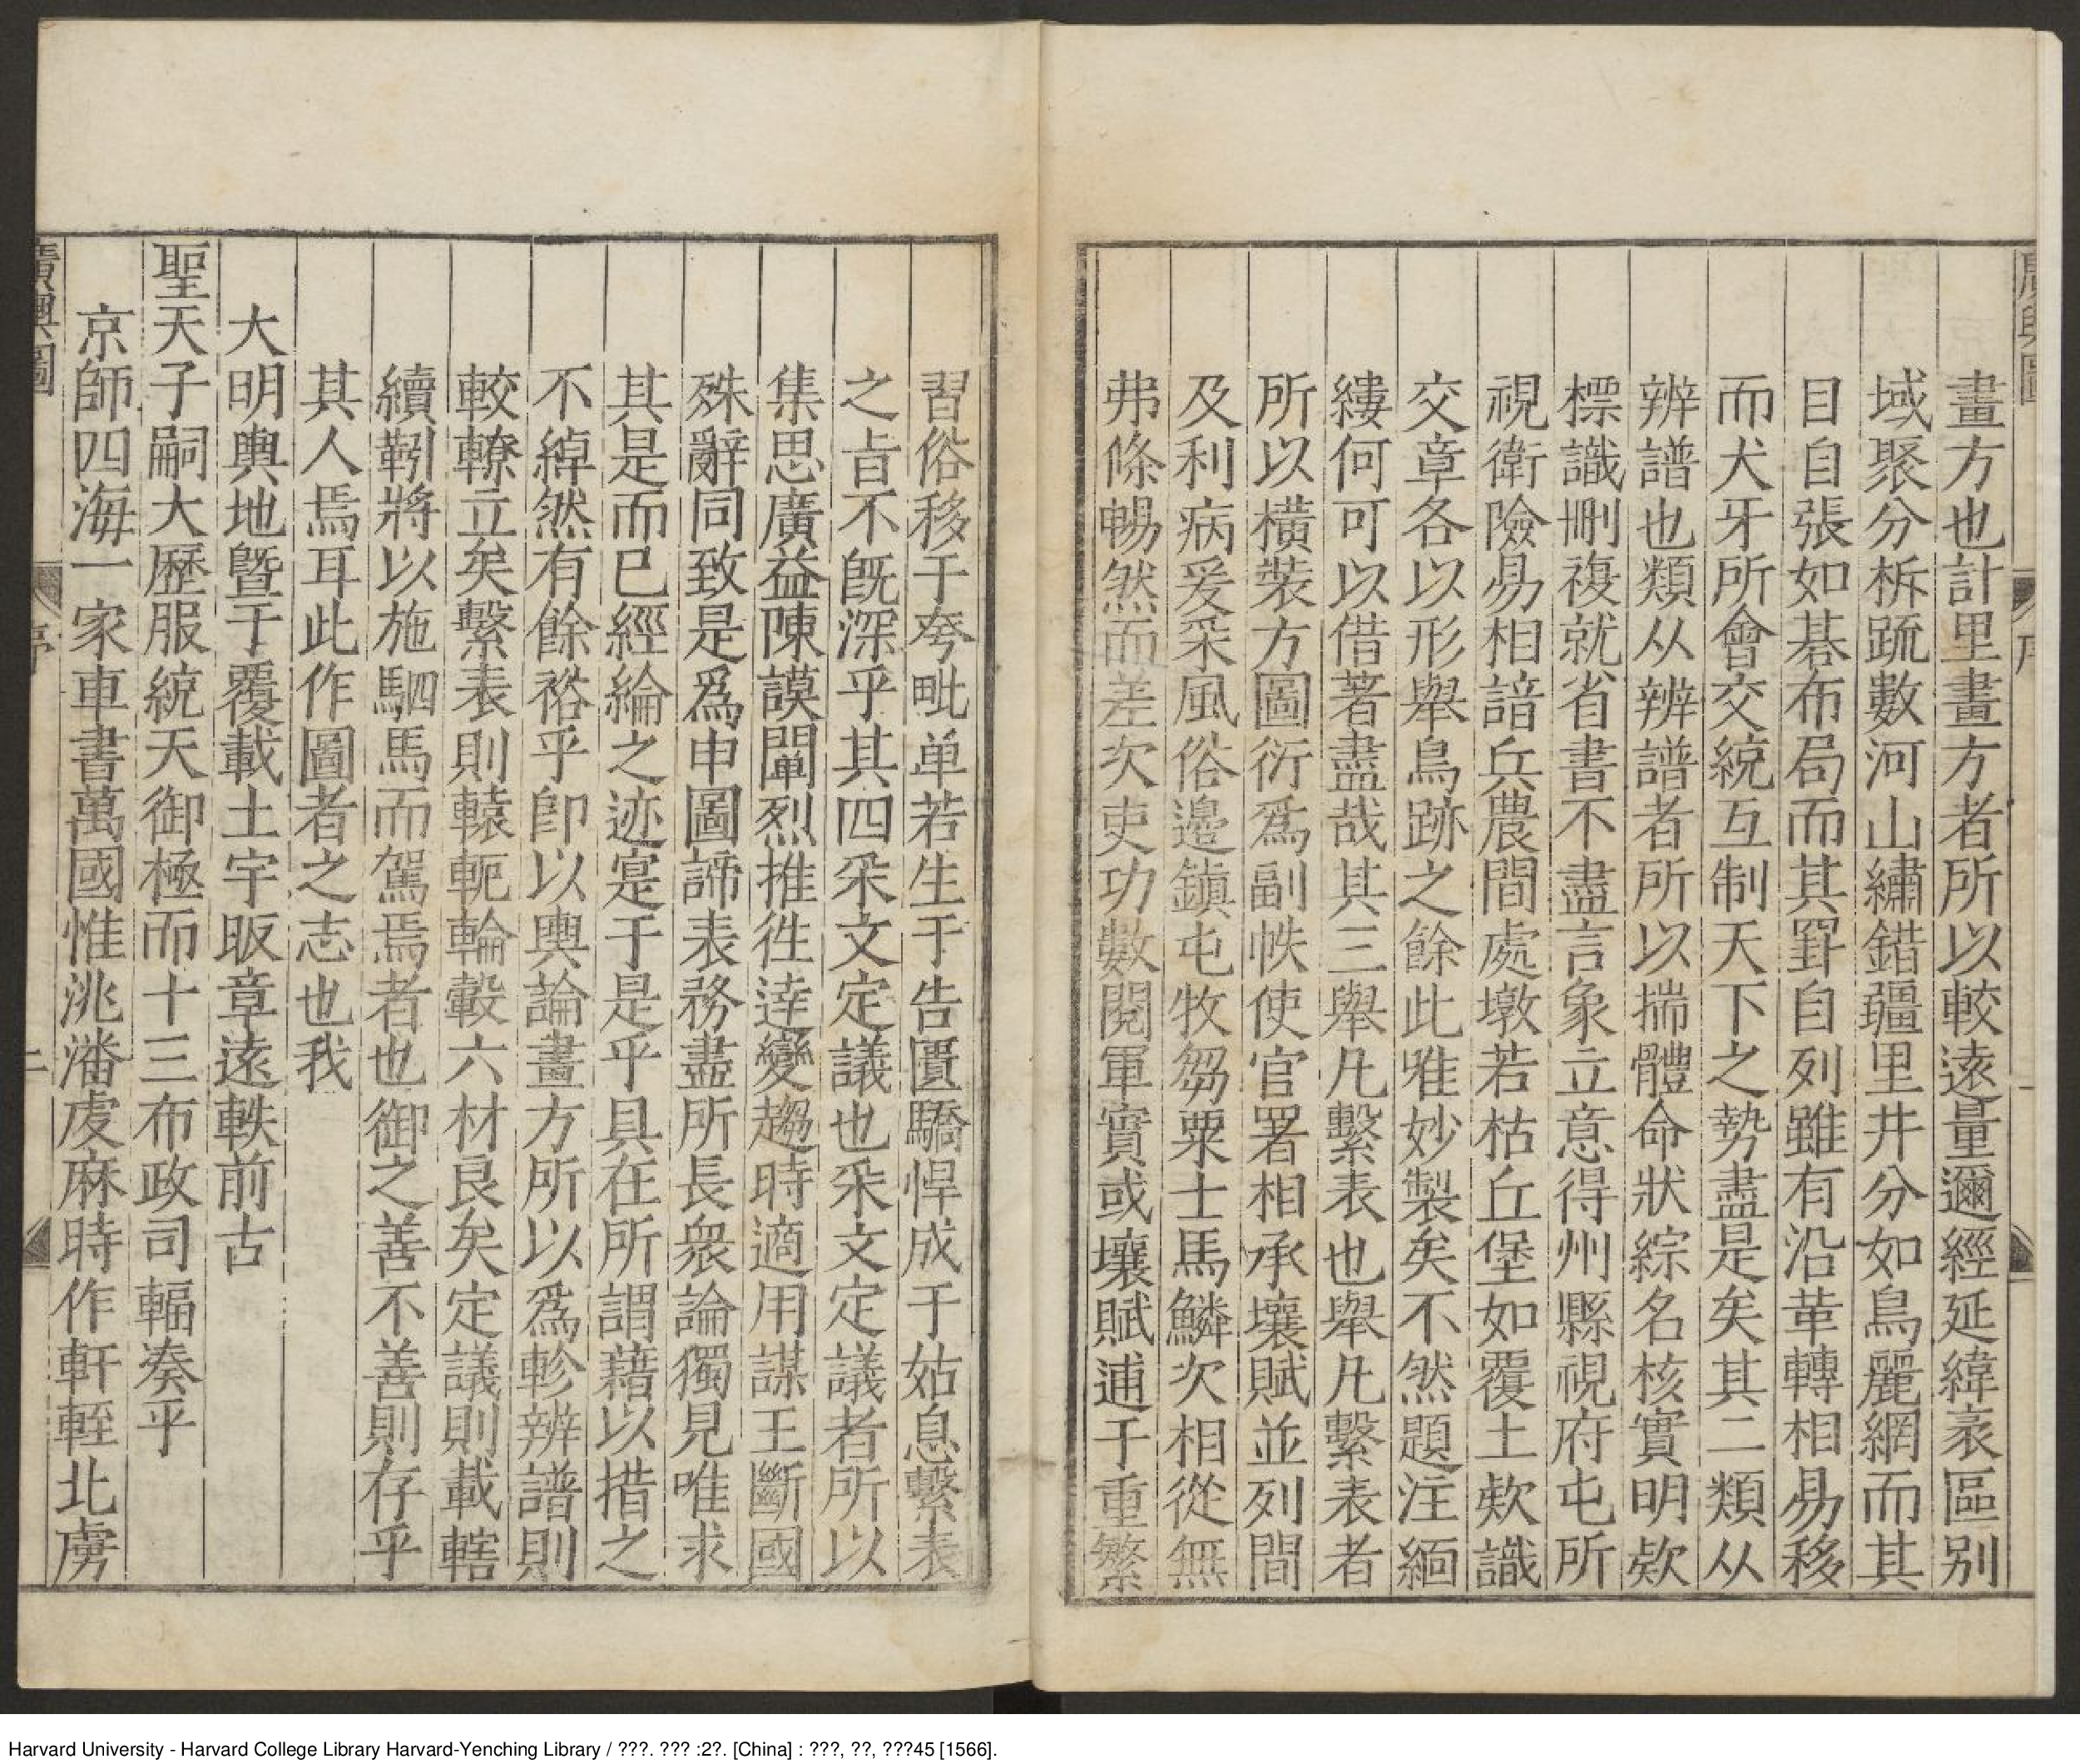 畫方也計里畫方者所以較遠量邇經延緯袤區别
域聚分柝䟽數河山繡錯疆里井分如鳥麗網而其
目自張如碁布局而其罫自列雖有沿革轉相易移
而犬牙所會交統互制天下之勢盡是矣其二類从
辨譜也類从辨譜者所以揣體命狀綜名核實明欵
標識刪複就省書不盡言象立意得州縣視府屯所
視衛險易相諳兵農間處墩若枯丘堡如覆土欵識
交章各以形舉鳥跡之餘此唯妙製矣不然題注緬
縷何可以借著盡哉其三舉凡繫表也舉凡繫表者
所以橫裝方圖衍爲副帙使官署相承壤賦並列間
及利病爰采風俗邊鎮屯牧芻粟士馬鱗次相從無
弗條暢然而差次吏功數閱軍實或壤賦逋于重繁
習俗移于夸毗单若生于告匱驕悍成于姑息繫表
之㫖不既深乎其四采文定議也采文定議者所以
集思廣益陳謨闡烈推徃逹變趨時適用謀王斷國
殊辭同致是爲申圖諦表務盡所長衆論獨見唯求
其是而已經綸之迹寔于是乎具在所謂藉以措之
不綽然有餘裕乎卽以輿論畫方所以爲軫辨譜則
較轑立矣繫表則轅軛輪轂六材良矣定議則載轄
續靷將以施駟馬而駕焉者也御之善不善則存乎
其人焉耳此作圖者之志也我
大明輿地曁于覆載土宇昄章遠軼前古
聖天子嗣大歷服統天御極而十三布政司輻凑乎
京師四海一家車書萬國惟洮潘虔麻時作軒輊北虜
廣輿圖
序
二